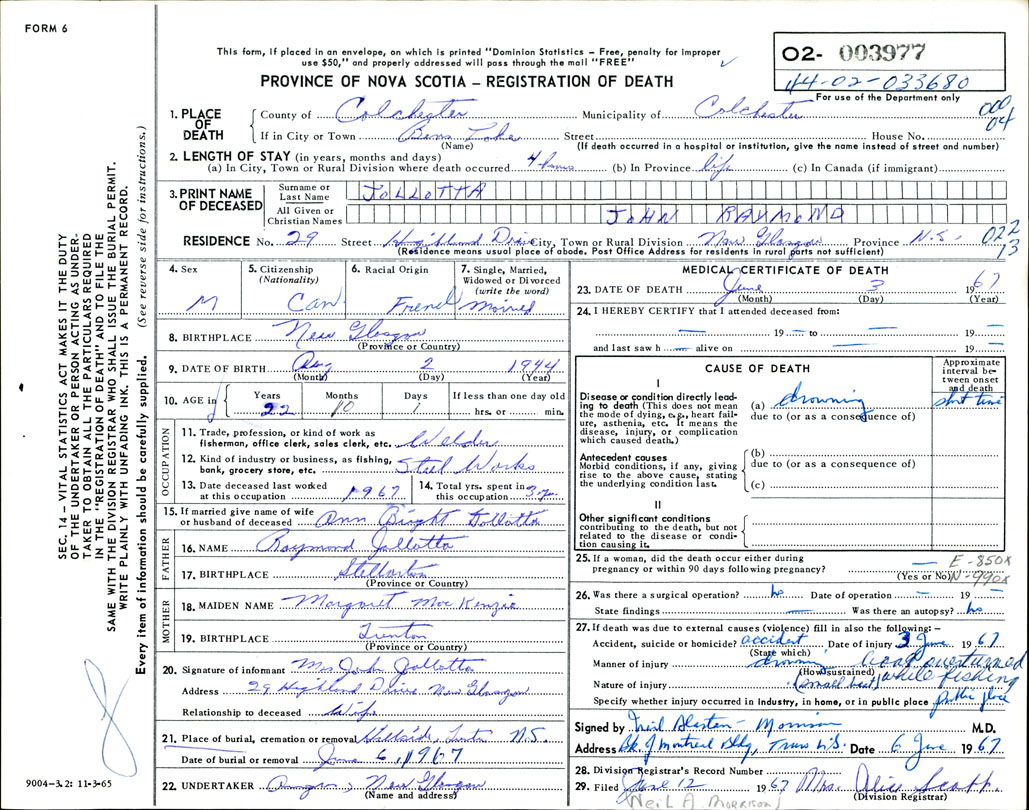 FORM 6
This form, if placed in an envelope, on which is printed "Dominion Statistics – Free, penalty for improper
use $50," and properly addressed will pass through the mail "FREE"
O2- 003977
44-02-033680
For use of the Department only
PROVINCE OF NOVA SCOTIA – REGISTRATION OF DEATH
000
04
1. PLACE OF DEATH
County of Colchester Municipality of Colchester
If in City or Town Bens Lake Street House No.
(Name) (If death occurred in a hospital or institution, give the name instead of street and number)
2. LENGTH OF STAY (in years, months and days)
(a) In City, Town or Rural Division where death occurred 4 hrs (b) In Province life (c) In Canada (if immigrant)
3. PRINT NAME OF DECEASED
Surname or Last Name JOLLOTTA
All Given or Christian Names JOHN RAYMOND
RESIDENCE No. 29 Street Highland Drive City, Town or Rural Division New Glasgow Province N.S. 022 13
(Residence means usual place of abode. Post Office Address for residents in rural parts not sufficient)
4. Sex M
5. Citizenship (Nationality) Can
6. Racial Origin French
7. Single, Married, Widowed or Divorced (write the word) Married
8. BIRTHPLACE New Glasgow
(Province or Country)
9. DATE OF BIRTH Aug 2 1944
(Month) (Day) (Year)
10. AGE in Years 22 Months 10 Days 1 If less than one day old hrs. or min.
OCCUPATION
11. Trade, profession, or kind of work as fisherman, office clerk, sales clerk, etc. Welder
12. Kind of industry or business, as fishing, bank, grocery store, etc. Steel Works
13. Date deceased last worked at this occupation 1967
14. Total yrs. spent in this occupation 3 yr.
15. If married give name of wife or husband of deceased Ann Bright Jollotta
FATHER
16. NAME Raymond Jollotta
17. BIRTHPLACE Stellarton
(Province or Country)
MOTHER
18. MAIDEN NAME Margaret MacKenzie
19. BIRTHPLACE Trenton
(Province or Country)
20. Signature of informant Mrs John Jollotta
Address 29 Highland Drive New Glasgow
Relationship to deceased Wife
21. Place of burial, cremation or removal Hillside, N.S.
Date of burial or removal June 6, 1967
22. UNDERTAKER New Glasgow
(Name and address)
MEDICAL CERTIFICATE OF DEATH
23. DATE OF DEATH June 3 1967
(Month) (Day) (Year)
24. I HEREBY CERTIFY that I attended deceased from:
— 19 — to — 19 —
and last saw h — alive on — 19 —
CAUSE OF DEATH
Approximate interval between onset and death
I
Disease or condition directly leading to death (This does not mean the mode of dying, e.g., heart failure, asthenia, etc. It means the disease, injury, or complication which caused death.)
(a) drowning short time
due to (or as a consequence of)
Antecedent causes
Morbid conditions, if any, giving rise to the above cause, stating the underlying condition last.
(b)
due to (or as a consequence of)
(c)
II
Other significant conditions
contributing to the death, but not related to the disease or condition causing it.
25. If a woman, did the death occur either during
pregnancy or within 90 days following pregnancy? —
(Yes or No)
E-850X
N-990X
26. Was there a surgical operation? no Date of operation — 19 —
State findings — Was there an autopsy? no
27. If death was due to external causes (violence) fill in also the following:–
Accident, suicide or homicide? accident Date of injury 3 June 1967
(State which)
Manner of injury drowning boat overturned
(How sustained) while fishing
Nature of injury (small boat)
Specify whether injury occurred in industry, in home, or in public place public place
Signed by Neil Alastair Morrison M.D.
Address Bk. of Montreal Bldg, Truro N.S. Date 6 June 1967
28. Division Registrar's Record Number
29. Filed June 12 1967 Mrs. Alice Scott
(Division Registrar)
(Neil A. Morrison)
SEC. 14 – VITAL STATISTICS ACT MAKES IT THE DUTY
OF THE UNDERTAKER OR PERSON ACTING AS UNDER-
TAKER TO OBTAIN ALL THE PARTICULARS REQUIRED
IN THE "REGISTRATION OF DEATH" AND TO FILE THE
SAME WITH THE DIVISION REGISTRAR WHO SHALL ISSUE THE BURIAL PERMIT.
WRITE PLAINLY WITH UNFADING INK. THIS IS A PERMANENT RECORD.
Every item of information should be carefully supplied. (See reverse side for instructions.)
9004-3.2: 11-3-65